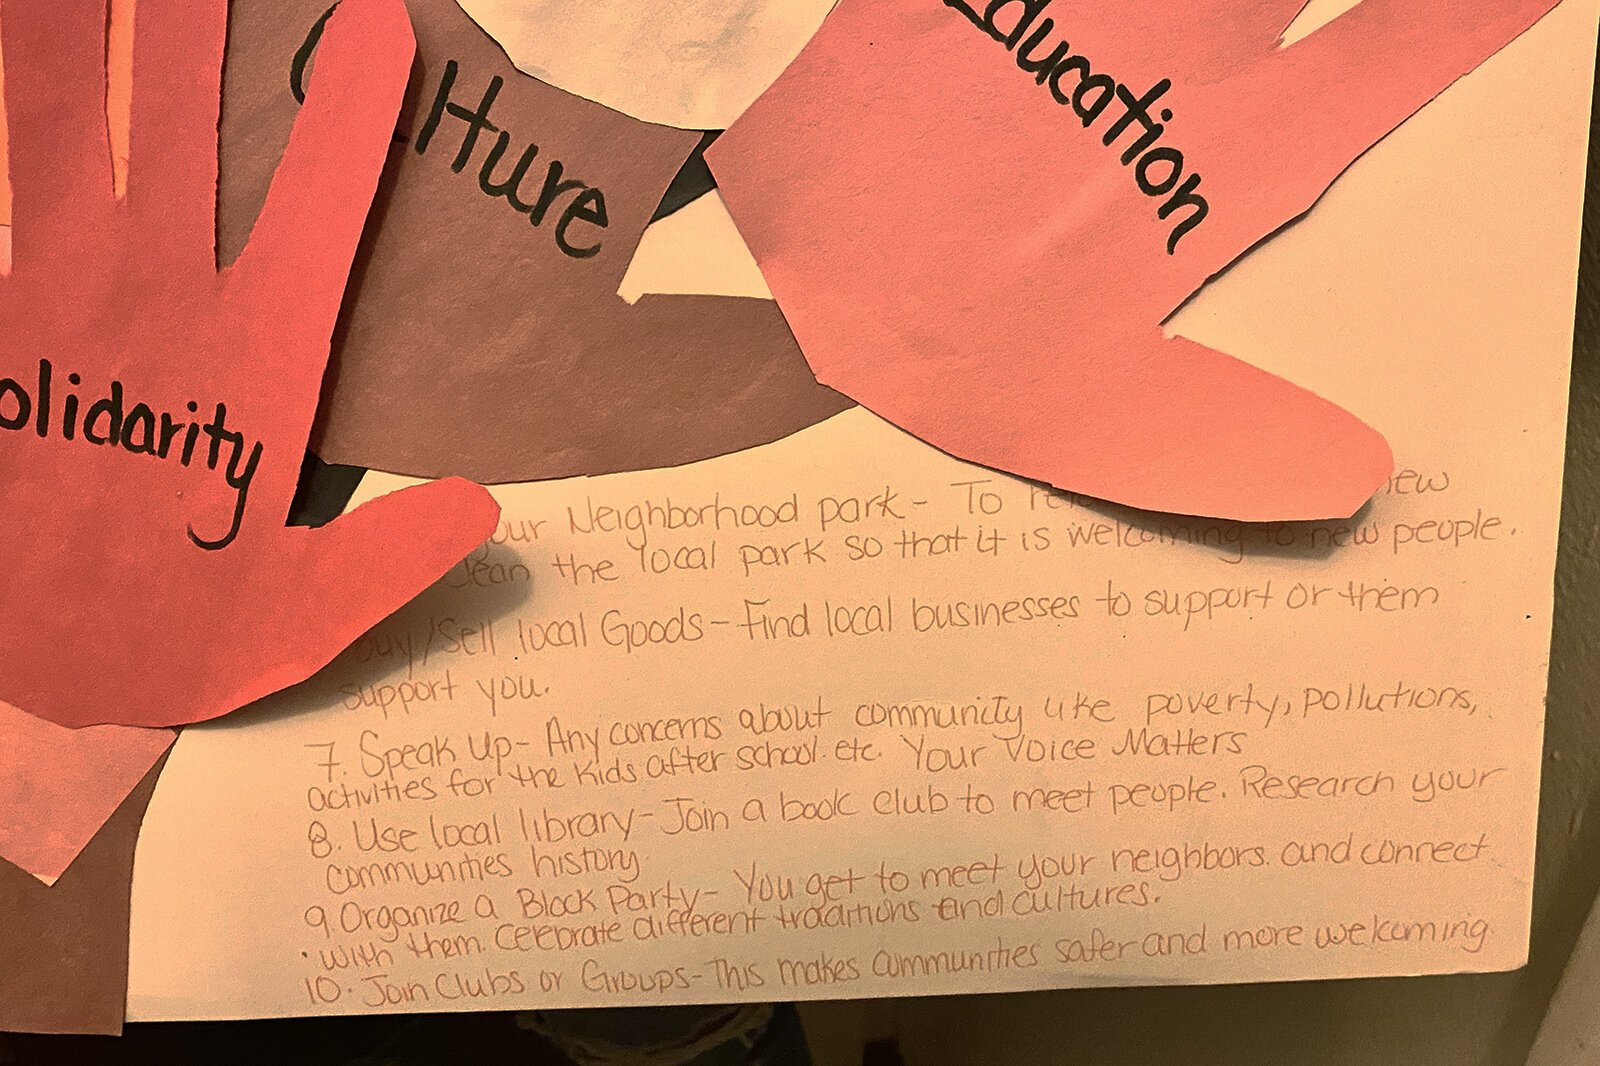 lture
Education
olidarity
our Neighborhood park - To new
clean the local park so that it is welcoming to new people.
Buy/Sell local Goods - Find local businesses to support or them
support you.
7. Speak Up - Any concerns about community like poverty, pollutions,
activities for the kids after school. etc. Your Voice Matters
8. Use local library - Join a book club to meet people. Research your
communities history.
9. Organize a Block Party - You get to meet your neighbors. and connect
with them. Celebrate different traditions and cultures.
10. Join Clubs or Groups - This makes communities safer and more welcoming.